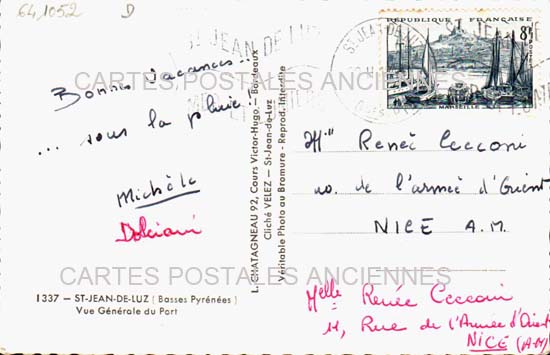 64,1052 D
ST JEAN DE LUZ
RÉPUBLIQUE FRANÇAISE
8F
MARSEILLE
Bonnes vacances...
... sous la pluie!
Michèle
Dolciani
CARTES POSTALES ANCIENNES
L. CHATAGNEAU 92, Cours Victor-Hugo. — Bordeaux
Cliché VELEZ — St-Jean-de-Luz
Véritable Photo au Bromure - Reprod. Interdite
Mlle Reneè Cecconi
no. de l'armeè d'Orient
NICE A.M.
CARTES POSTALES ANCIENNES
1337 — ST-JEAN-DE-LUZ (Basses Pyrénées)
Vue Générale du Port
Melle Renée Cecconi
11, Rue de l'Armée d'Orient
NICE (A-M)